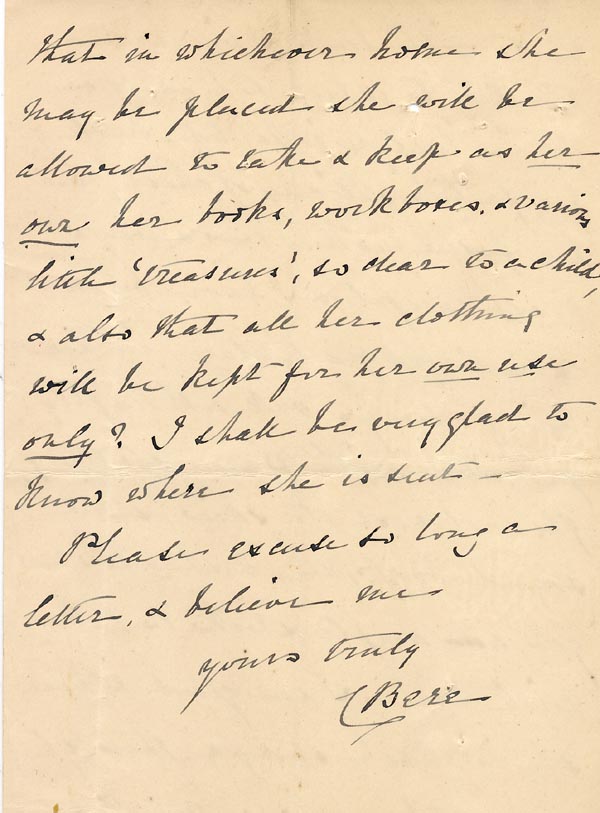 that in whichever home she
may be placed she will be
allowed to take & keep as her
own her books, workboxes, & various
little 'treasures', so dear to a child,
& also that all her clothing
will be kept for her own use
only? I shall be very glad to
know where she is sent -
Please excuse so long a
letter, & believe me
yours truly
C Bere